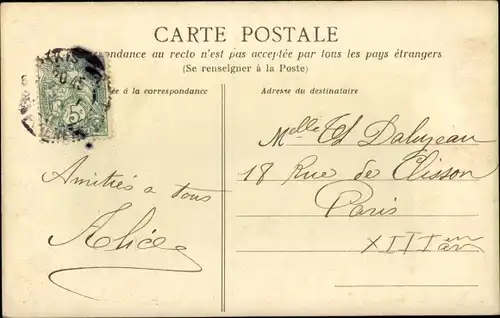 CARTE POSTALE
spondance au recto n'est pas acceptée par tous les pays étrangers
(Se renseigner à la Poste)
ée à la correspondance
Adresse du destinataire
5c
Melle Th Daluzeau
18 Rue de Clisson
Paris
XIIIème
Amitiés a tous
Alice